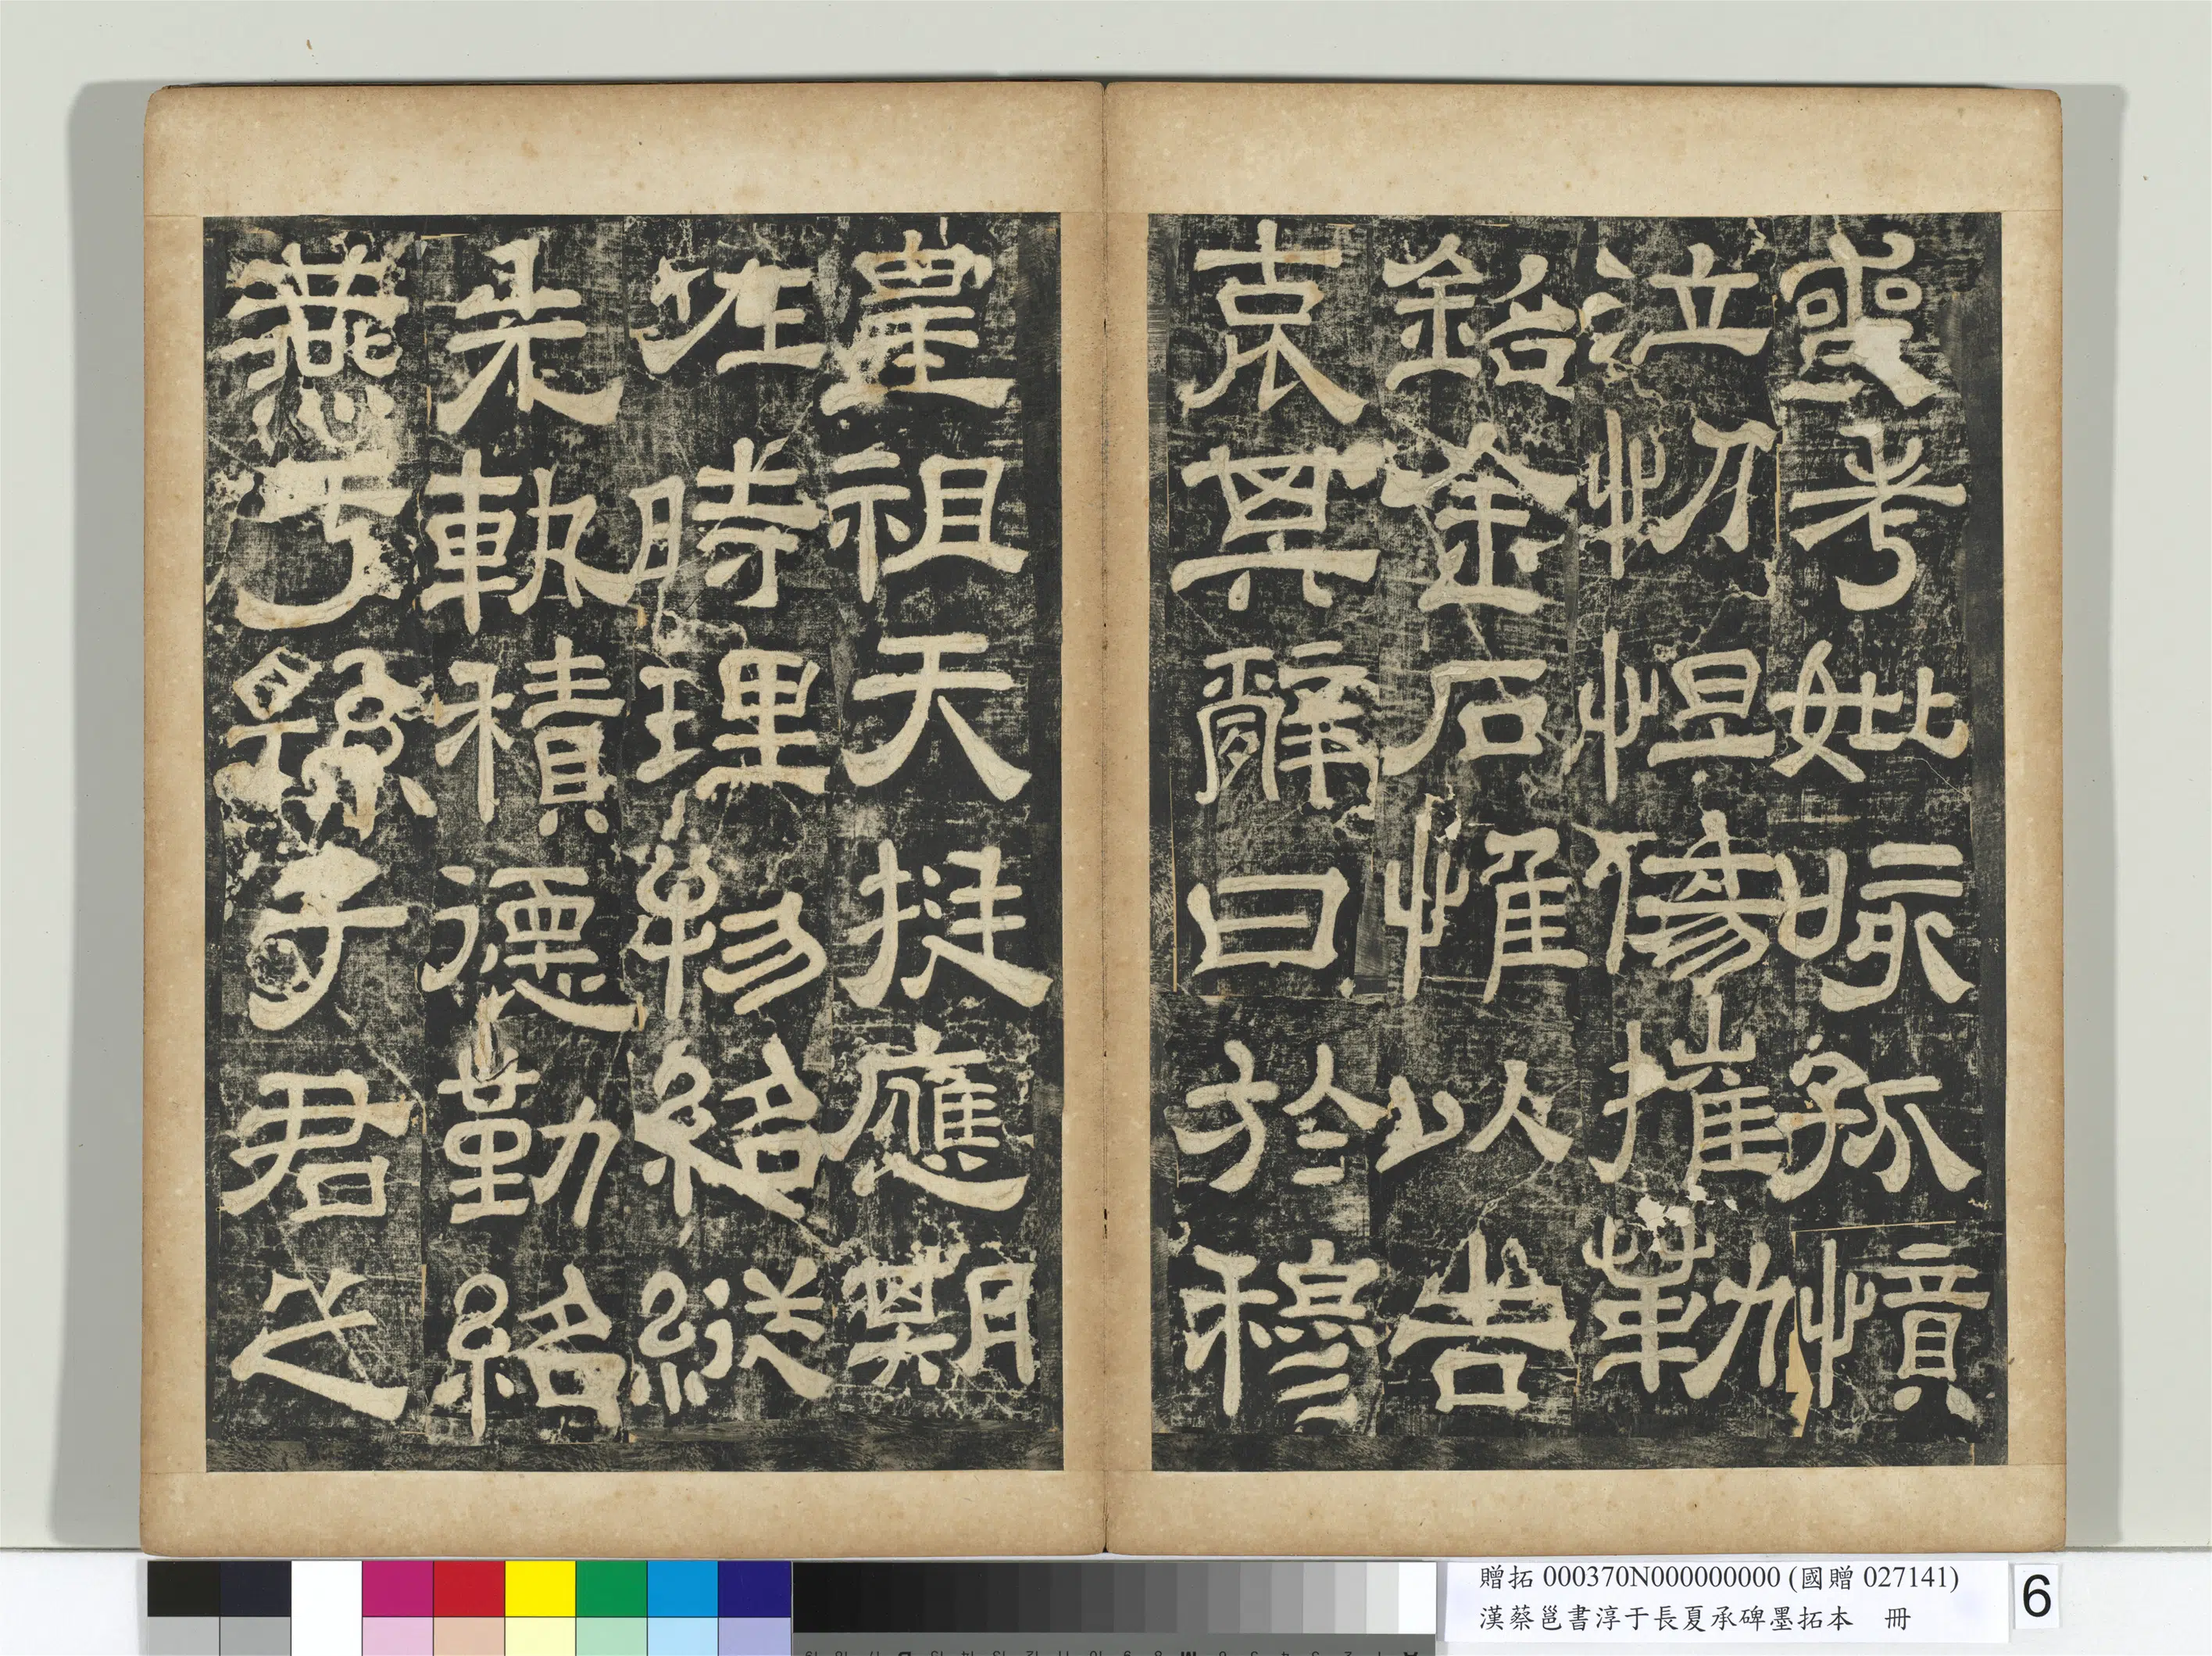 喪考妣咳孤憤
泣忉怛傷摧勒
銘金石惟以告
哀其辭曰於穆
皇祖天挺應期
佐時理物紹縱
先軌積德勤紹
燕于孫子君之
贈拓 000370N000000000 (國贈 027141)
漢蔡邕書淳于長夏承碑墨拓本 冊
6